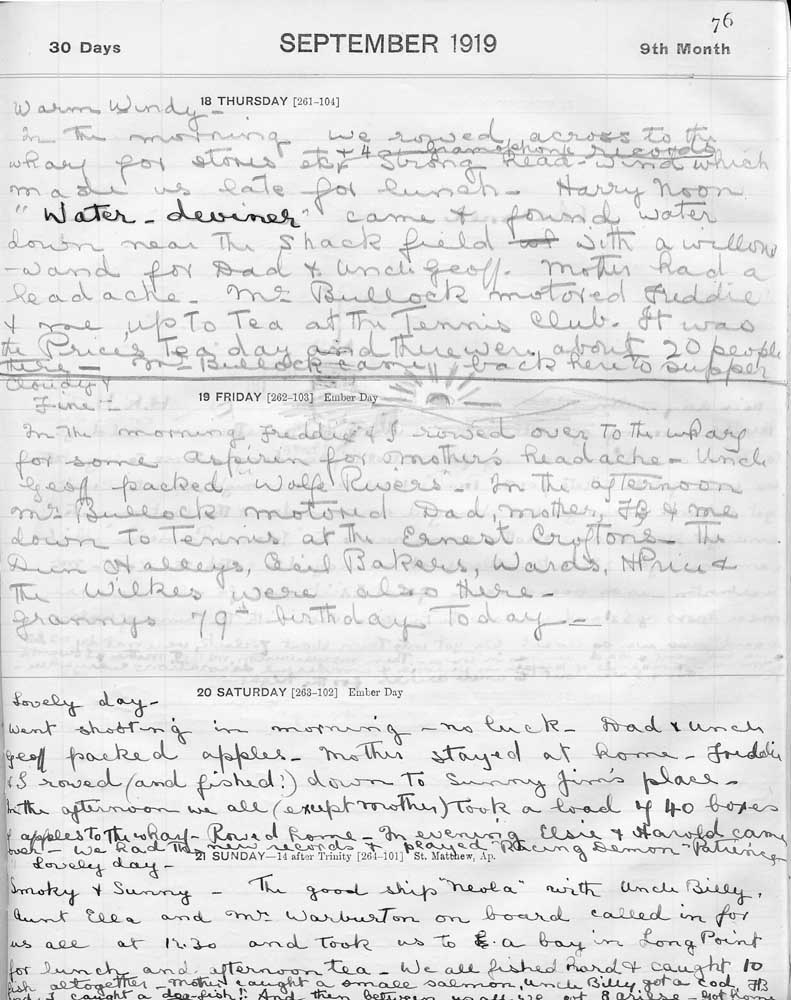 76
30 Days SEPTEMBER 1919 9th Month
18 THURSDAY [261-104]
Warm Windy -
In the morning we rowed across to the
& 4 gramophone records
wharf for stores etc Strong head-wind which
made us late for lunch - Harry Noon
"Water-deviner" came & found water
down near the shack field with a willow
-wand for Dad & Uncle Geoff. Mother had a
headache. Mr Bullock motored Freddie
& me up to Tea at the Tennis Club. It was
the Price's Tea day and there were about 20 people
there - Mr Bullock came back here to supper
Cloudy &
Fine -
19 FRIDAY [262-103] Ember Day
In the morning Freddie & I rowed over to the wharf
for some aspirin for mother's headache - Uncle
Geoff packed "Wolfe Rivers" - In the afternoon
Mr Bullock motored Dad, mother, FB & me
down to Tennis at the Ernest Croftons - The
Dunn Halleys, Cecil Bakers, Wards, NPrice &
the Wilkes were also there -
Grannys 79th birthday Today -
20 SATURDAY [263-102] Ember Day
Lovely day -
Went shooting in morning - no luck - Dad & Uncle
Geoff packed apples - Mother stayed at home - Freddie
& I rowed (and fished!) down to Sunny Jim's place -
In the afternoon we all (except mother) took a load of 40 boxes
of apples to the wharf - Rowed home - In evening Elsie & Harold came
over - We had the new records & played "Racing Demon" Patience
21 SUNDAY—14 after Trinity [264-101] St. Matthew, Ap.
Lovely day -
Smoky & Sunny - The good ship "Neola" with Uncle Billy,
Aunt Ella and Mr Warburton on board called in for
us all at 11.30 and took us to a bay in Long Point
for lunch and afternoon tea - We all fished hard & caught 10
fish altogether - mother caught a small salmon, Uncle Billy got a cod, FB
and I caught a dog-fish!! And then between us all we got 8